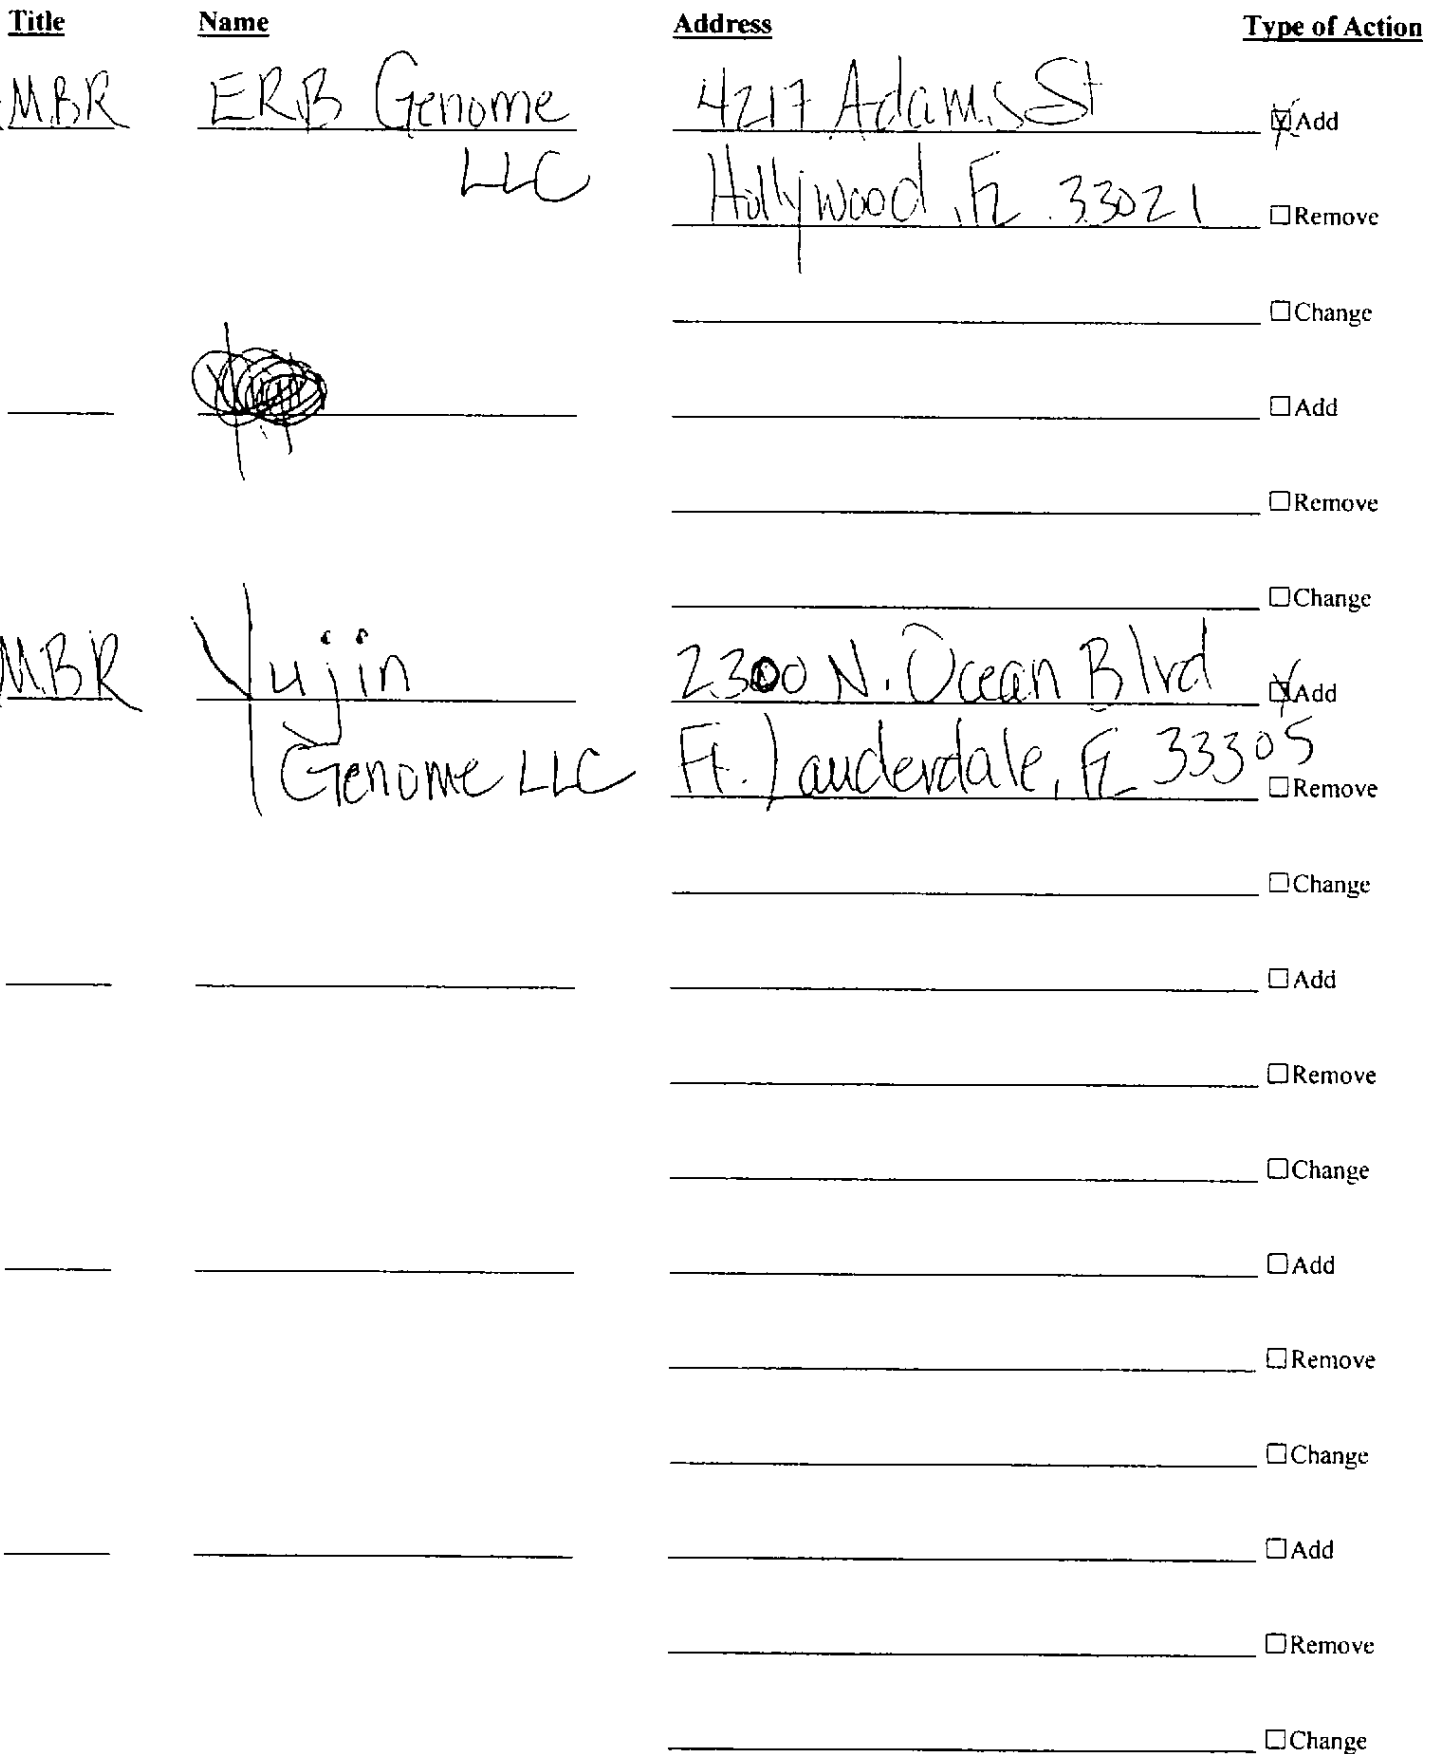 Title Name Address Type of Action
MBR ERB Genome 4217 Adams St Add
LLC Hollywood, FL 33021 Remove
Change
Add
Remove
Change
MBR Yujin 2300 N. Ocean Blvd Add
Genome LLC Ft. Lauderdale, FL 33305 Remove
Change
Add
Remove
Change
Add
Remove
Change
Add
Remove
Change